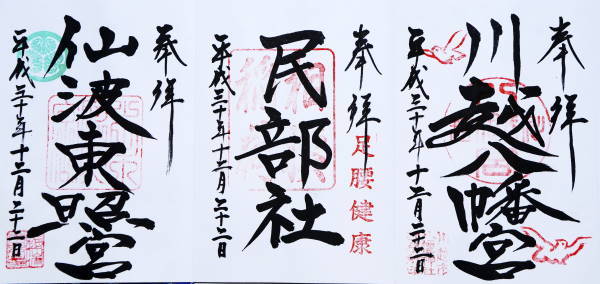 奉拝
川越八幡宮
平成三十年十二月二十二日
奉拝
足腰健康
民部社
平成三十年十二月二十二日
奉拝
仙波東照宮
平成三十年十二月二十二日